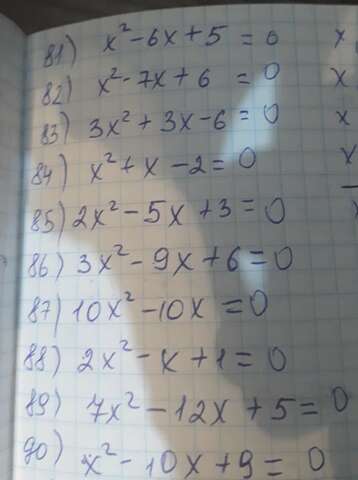 81) x² - 6x + 5 = 0 x
82) x² - 7x + 6 = 0 x
83) 3x² + 3x - 6 = 0 x
84) x² + x - 2 = 0 x
85) 2x² - 5x + 3 = 0
86) 3x² - 9x + 6 = 0
87) 10x² - 10x = 0
88) 2x² - x + 1 = 0
89) 7x² - 12x + 5 = 0
90) x² - 10x + 9 = 0